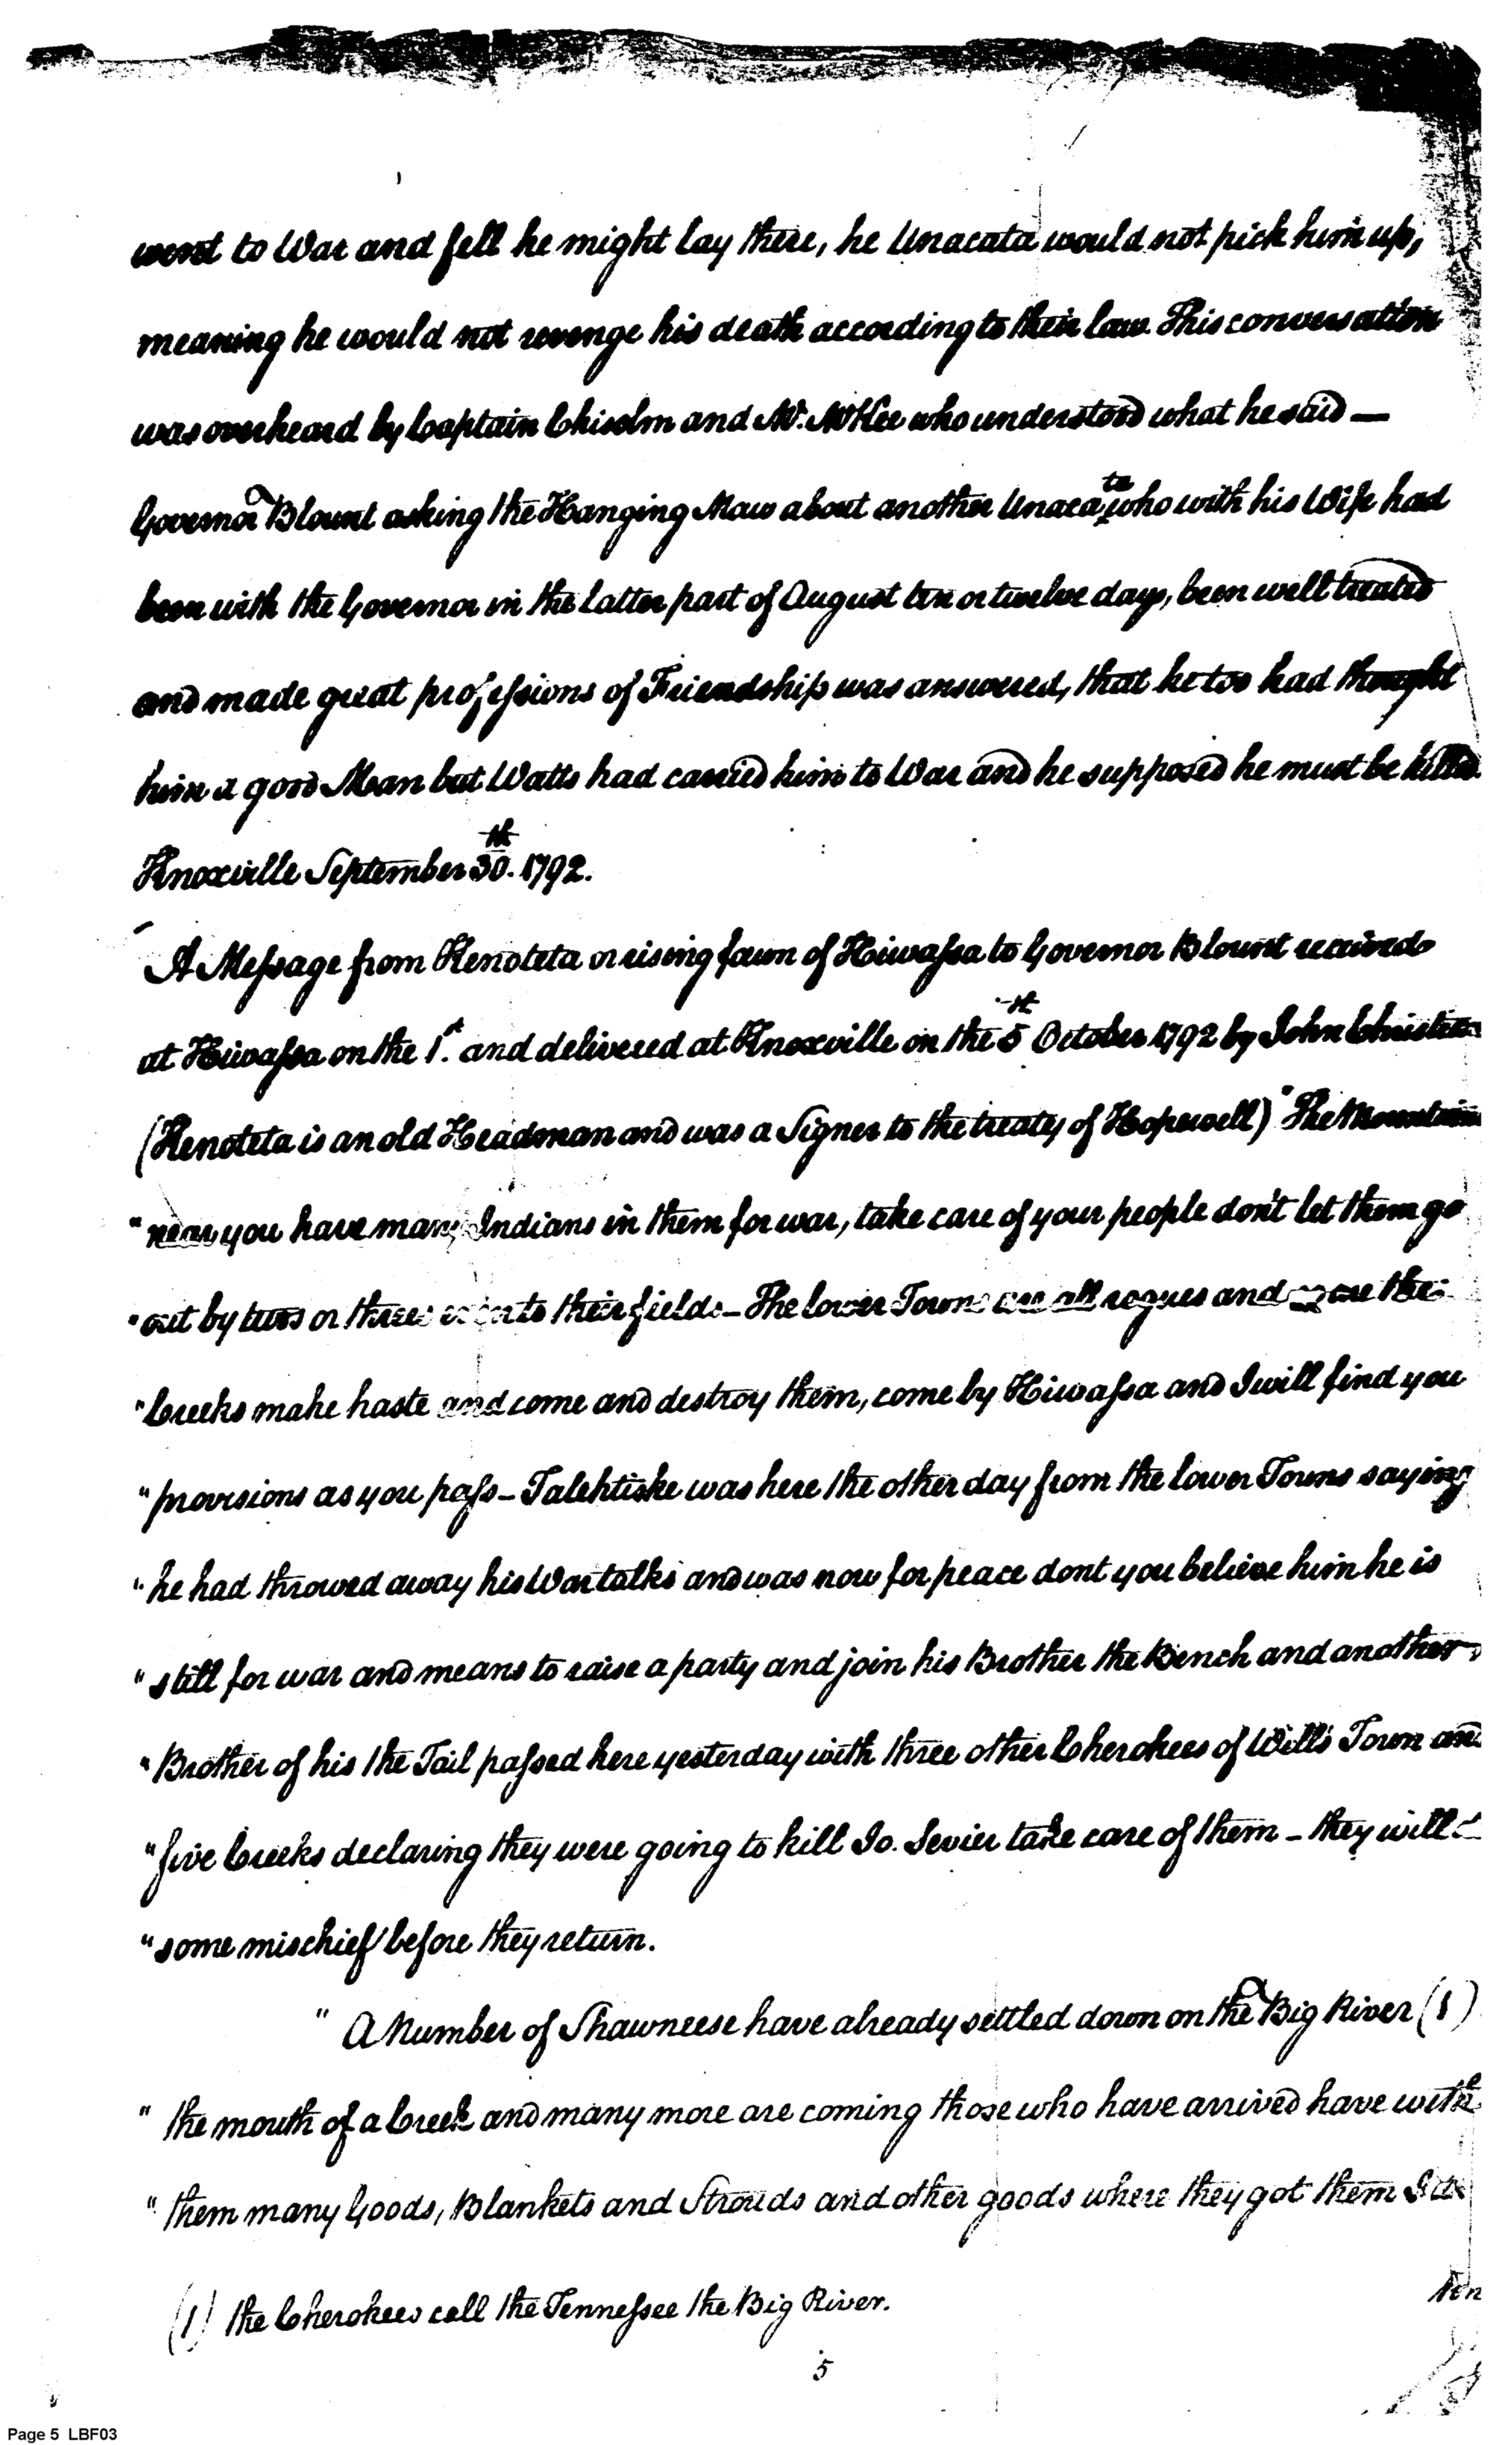 went to War and fell he might lay there, he Unacata would not pick him up,
meaning he would not revenge his death according to their law. This conversation
was overheard by Captain Chisolm and Mr. McKee who understood what he said —
Governor Blount asking the Hanging Maw about another Unacata who with his Wife had
been with the Governor in the latter part of August ten or twelve days, been well treated
and made great professions of Friendship was answered, that he too had thought
him a good Man but Watts had carried him to War and he supposed he must be killed.
Knoxville September 30th. 1792.
A Message from Kenoteta or rising fawn of Hiwassa to Governor Blount received
at Hiwassa on the 1st. and delivered at Knoxville on the 5th October 1792 by John
(Kenoteta is an old Headman and was a Signer to the treaty of Hopewell) "The Mountains
" near you have many Indians in them for war, take care of your people don't let them go
" out by twos or threes to their fields – The lower Towns are all rogues and are the
" Creeks make haste and come and destroy them, come by Hiwassa and I will find you
" provisions as you pass – Talehtiske was here the other day from the lower Towns saying
" he had throwed away his War talks and was now for peace dont you believe him he is
" still for war and means to raise a party and join his Brother the Bench and another
" Brother of his the Tail passed here yesterday with three other Cherokees of Will's Town and
" five Creeks declaring they were going to kill Jo. Sevier take care of them – they will
" some mischief before they return.
" A Number of Shawneese have already settled down on the Big River (1)
" the mouth of a Creek and many more are coming those who have arrived have with
" them many Goods, Blankets and Strouds and other goods where they got them I
(1) the Cherokees call the Tennessee the Big River.
5
Page 5 LBF03